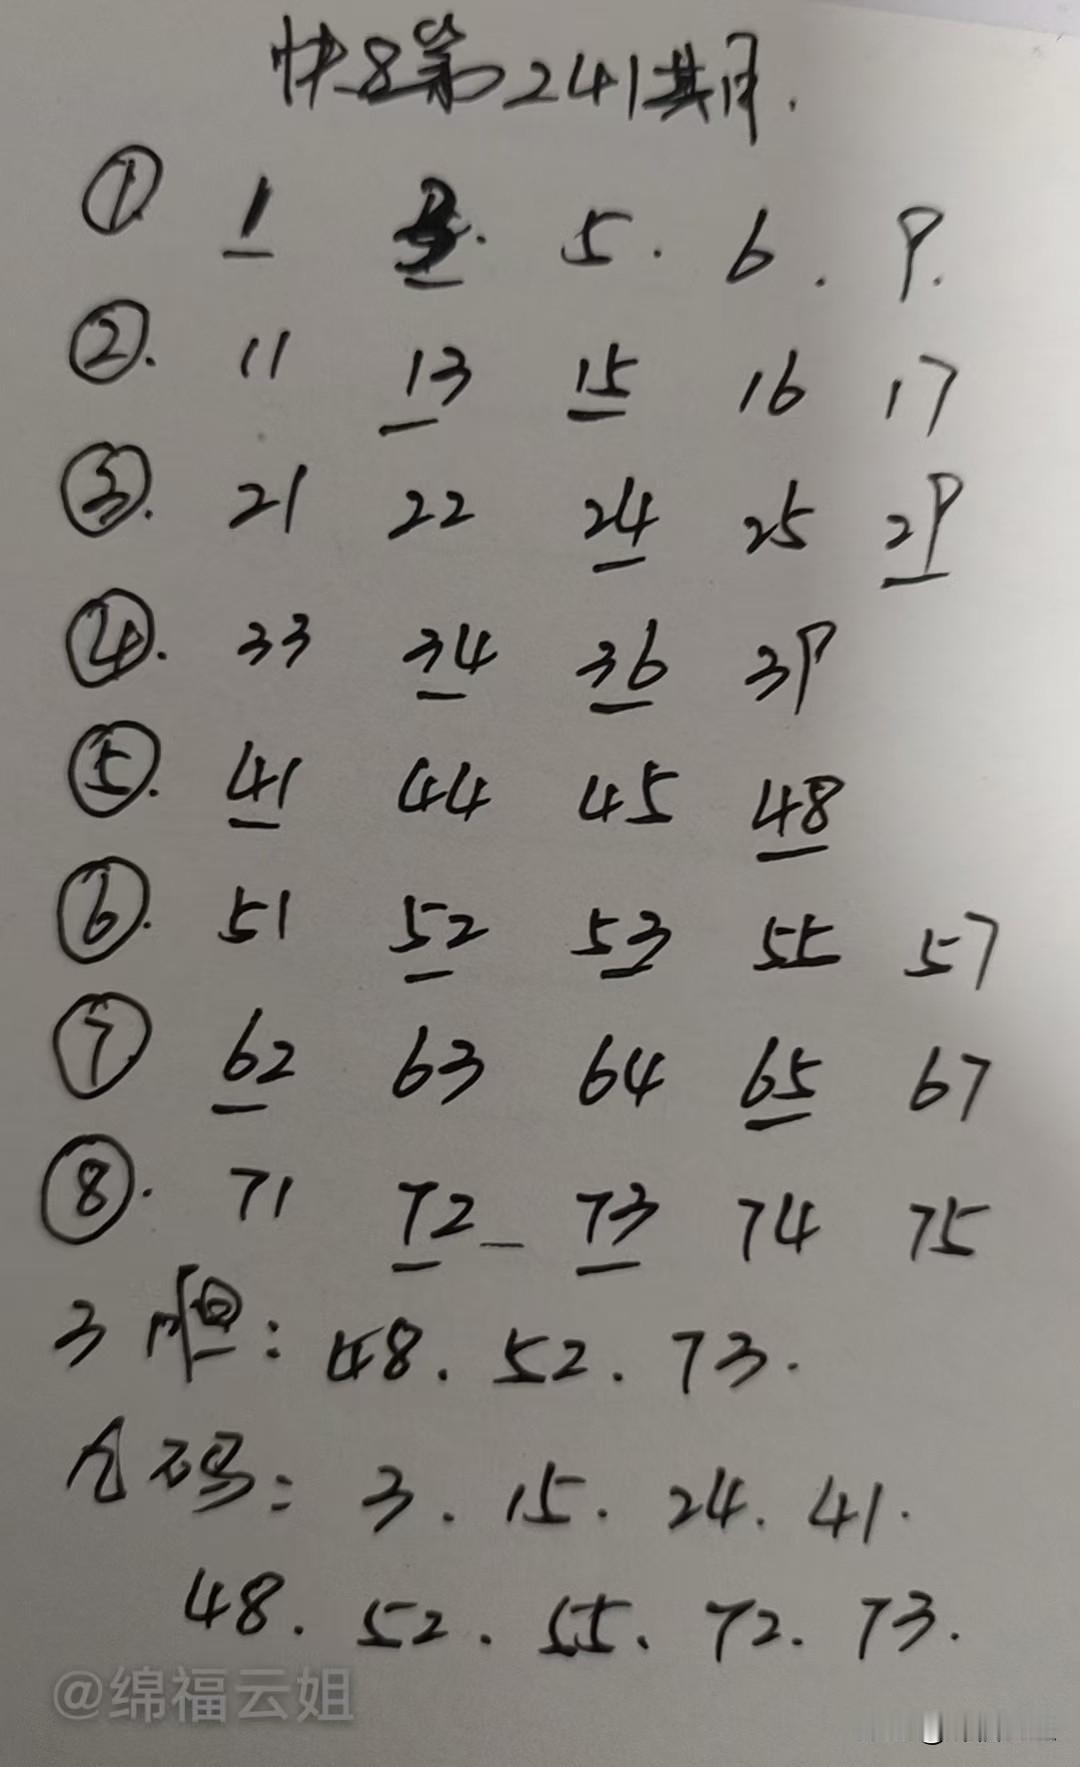 快8第241期
① 1 3. 5. 6. 9.
②. 11 13 15 16 17
③. 21 22 24 25 29
④. 33 34 36 39
⑤. 41 44 45 48
⑥. 51 52 53 55 57
⑦ 62 63 64 65 67
⑧. 71 72 73 74 75
3胆: 48. 52. 73.
码: 3. 15. 24. 41.
48. 52. 55. 72. 73.
@绵福云姐